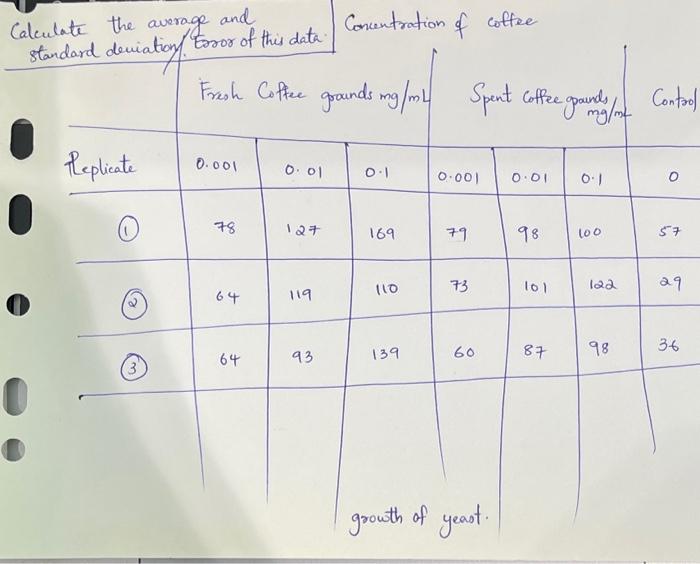 Calculate the average and
standard deviation/Error of this data.
Concentration of coffee
Fresh Coffee grounds mg/mL
Spent Coffee grounds, mg/mL
Control
Replicate 0.001 0.01 0.1 0.001 0.01 0.1 0
1 78 127 169 79 98 100 57
2 64 119 110 73 101 122 29
3 64 93 139 60 87 98 36
growth of yeast.